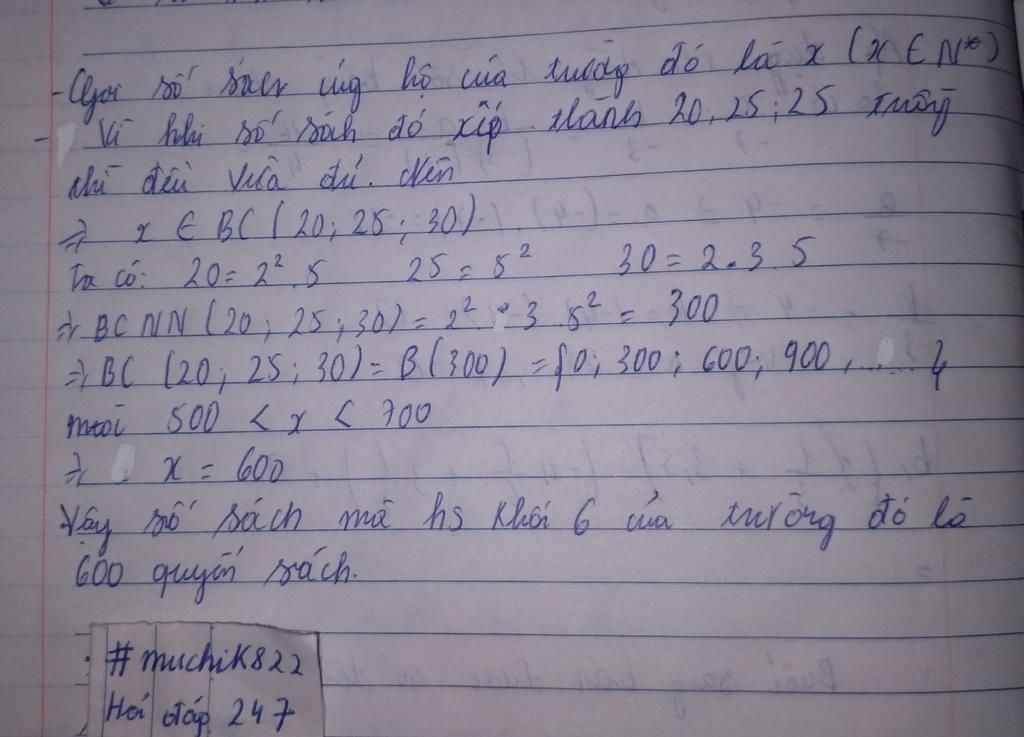 - Gọi số sách ủng hộ của trường đó là x (x ∈ N*)
- Vì khi số sách đó xếp thành 20, 25; 25
thì đều vừa đủ. Nên
=> x ∈ BC (20; 25; 30)
Ta có: 20 = 2². 5 25 = 5² 30 = 2.3 5
=> BCNN (20; 25; 30) = 2² . 3 5² = 300
=> BC (20; 25; 30) = B(300) = {0; 300; 600; 900, .... }
500 < x < 700
=> x = 600
Vậy số sách mà hs khối 6 của trường đó là
600 quyển sách.
#muchik822
Hỏi đáp 247